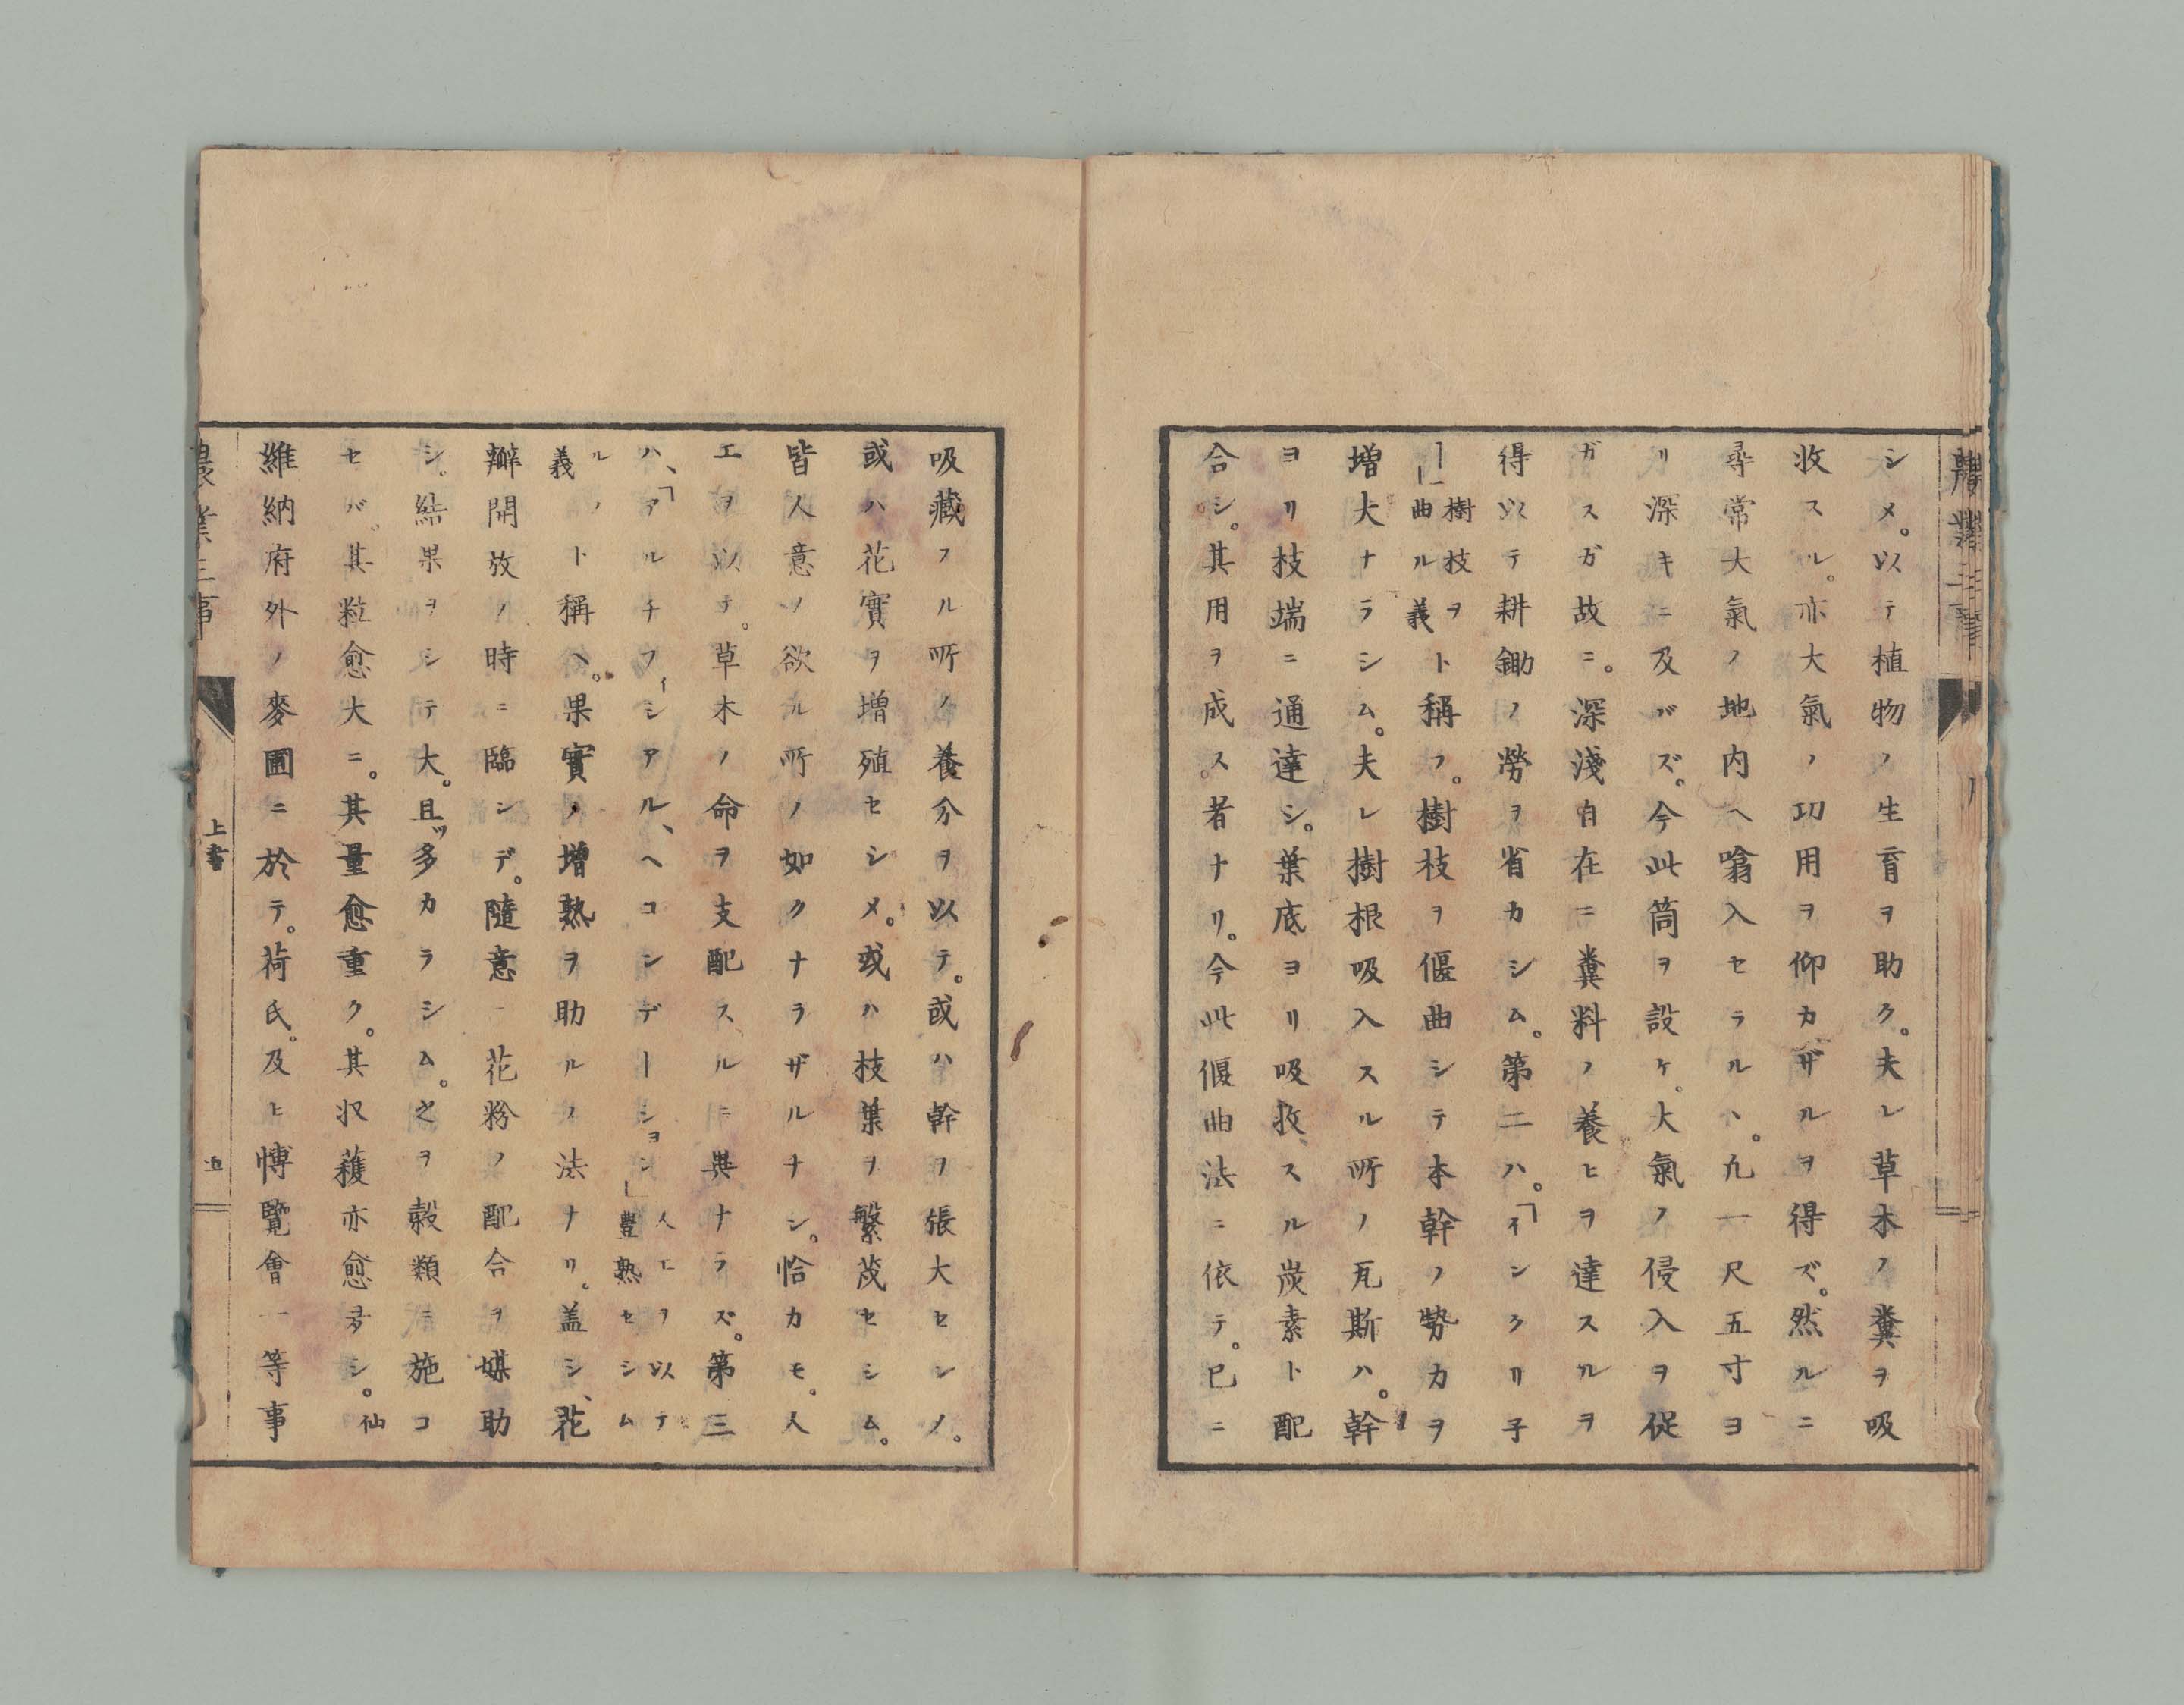 シメ。以テ植物ノ生育ヲ助ク。夫レ草木ノ糞ヲ吸
收スル。亦大氣ノ功用ヲ仰カザルヲ得ズ。然ルニ
尋常大氣ノ地内ヘ噏入セラルヽ。凢一尺五寸ヨ
リ深キニ及バズ。今此筒ヲ設ケ。大氣ノ侵入ヲ促
ガスガ故ニ。深淺自在ニ糞料ノ養ヒヲ達スルヲ
得以テ耕鋤ノ勞ヲ省カシム。第二ハ。「インクリ子
ー」樹枝ヲ曲ル義ト稱フ。樹枝ヲ偃曲シテ本幹ノ勢力ヲ
増大ナラシム。夫レ樹根吸入スル所ノ瓦斯ハ。幹
ヨリ枝端ニ通達シ。葉底ヨリ吸收スル炭素ト配
合シ。其用ヲ成ス。者ナリ。今此偃曲法ニ依テ。已ニ
吸藏フル所ノ養分ヲ以テ。或ハ幹ヲ張大セシノ。
或ハ花實ヲ増殖セシメ。或ハ枝葉ヲ繁茂セシム。
皆人意ノ欲ル所ノ如クナラザルナシ。恰カモ。人
エヲ以テ。草木ノ命ヲ支配スルニ異ナラズ。第三
ハ、「アルチフィシアル、ヘコンデーションヲ」人工ヲ以テ豊熟セシム
ルノ義ト稱ヘ。果實ノ増熟ヲ助ルノ法ナリ。盖シ、花
瓣開放ノ時ニ臨シデ。隨意ニ花粉ノ配合ヲ媒助
シ。結果ヲシテ大。且ッ多カラシム。之ヲ穀類ニ施コ
セバ。其粒愈大ニ。其量愈重ク。其収穫亦愈多シ。仙
維納府外ノ麥圃ニ於テ。荷氏。及ヒ博覽會一等事
農業三事
上書
五